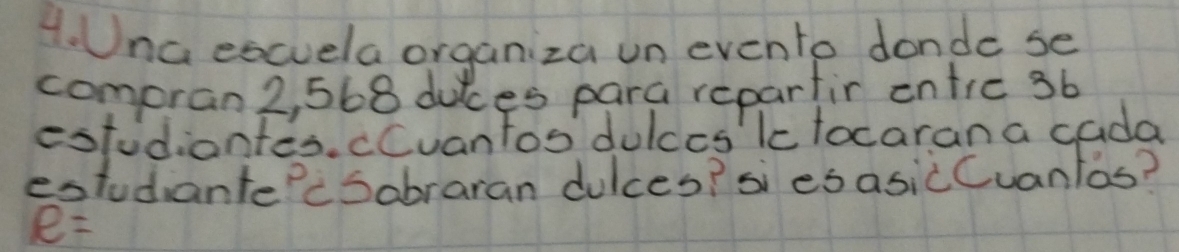 4. Una escuela organiza un evento donde se
compran 2,568 dulces para repartir entre 36
estudiantes. ¿Cuantos dulces le tocaran a cada
estudiante? ¿Sobraran dulces? si es asi ¿Cuantos?
R=